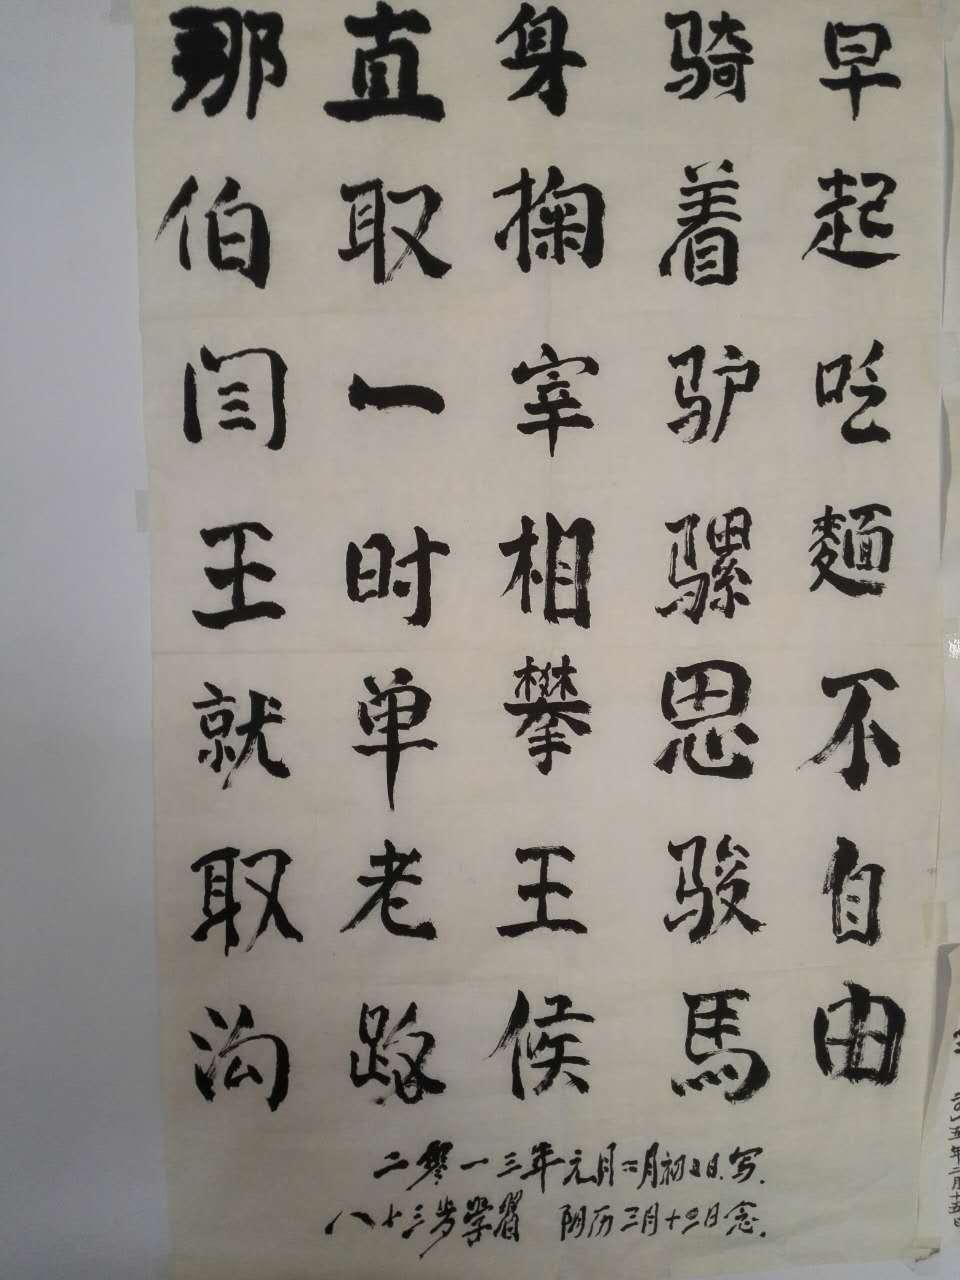 早起吃麵不自由
骑着驴骡思骏馬
身掬宰相攀王候
直取一时单老路
那伯闫王就取沟
二零一三年元月二月初七日.写.
八十三岁学習 阴历三月十三日念.
二〇一五年二月十五日